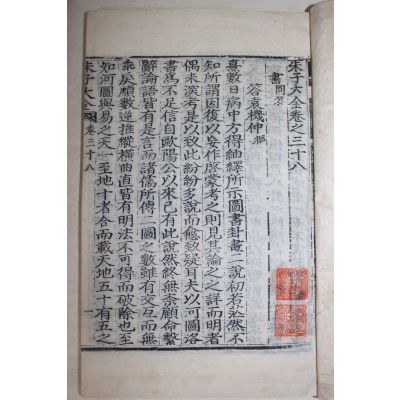 朱子大全卷之三十八
書問答
答袁機仲樞
熹數日病中方得紬繹所示圖書卦畫二說初若茫然不
知所謂因復以妄作啓蒙考之則見其論之之詳而明者
偶未深考是以致此紛紛多說而愈致疑耳夫以河圖洛
書爲不足信自歐陽公以來已有此說然終無柰顧命繫
辭論語皆有是言而諸儒所傳二圖之數雖有交互而無
乖戾順數逆推縱橫曲直皆有明法不可得而破除也至
如河圖與易之天一至地十者合而載天地五十有五之
朱子大全 卷三十八 一